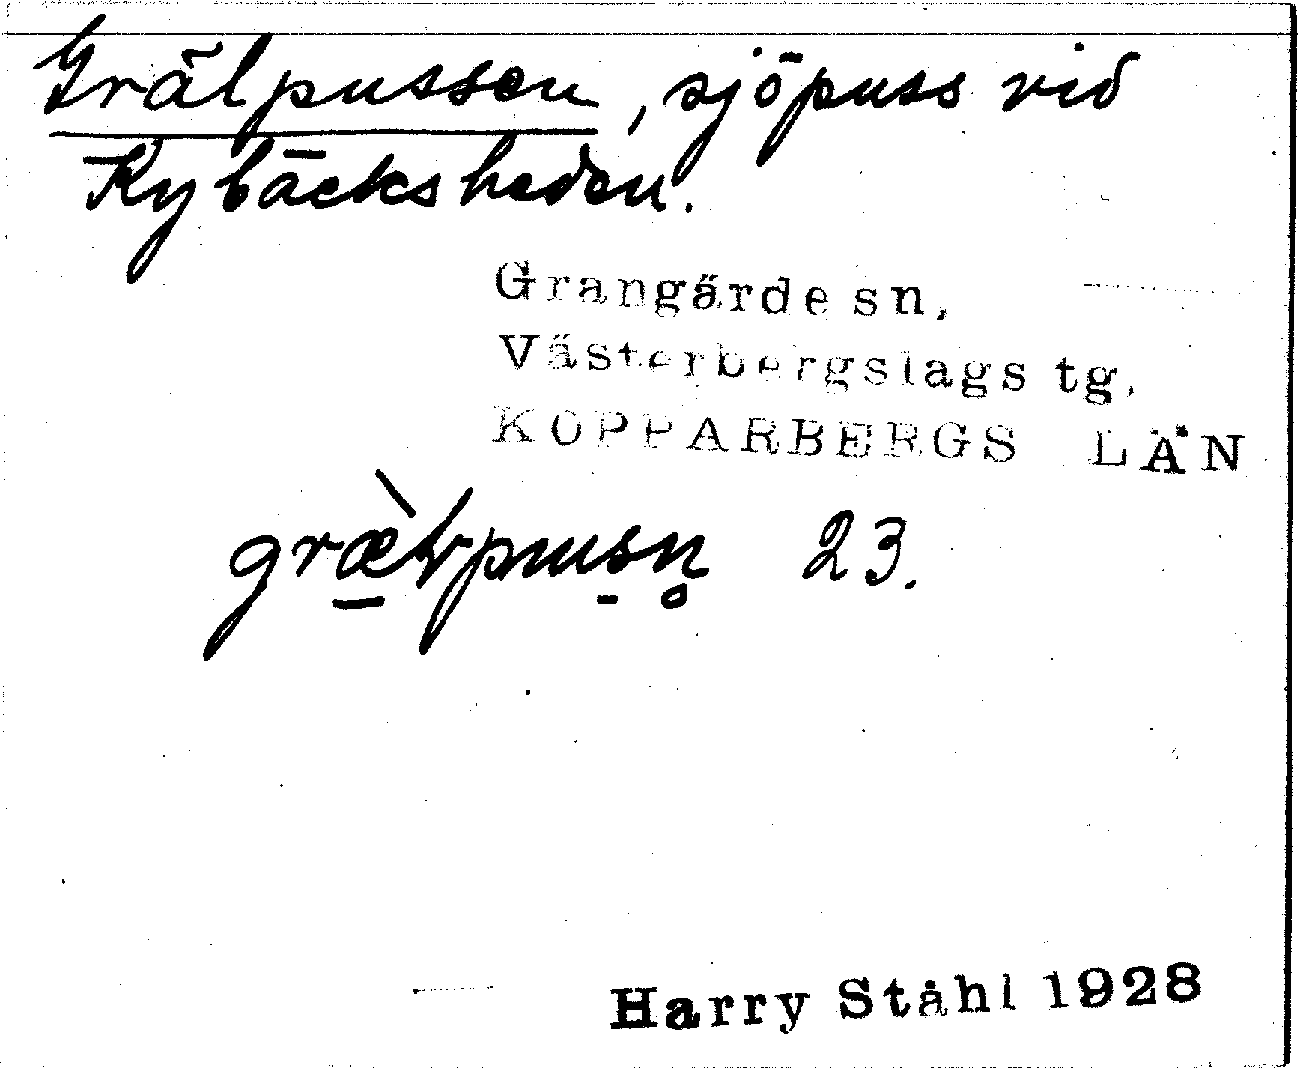 Grälpussen, sjöpuss vid
Kybäcksheden.
Grangärde sn,
Västerbergslags tg.
KOPPARBERGS LÄN
23.
Harry Ståhl 1928